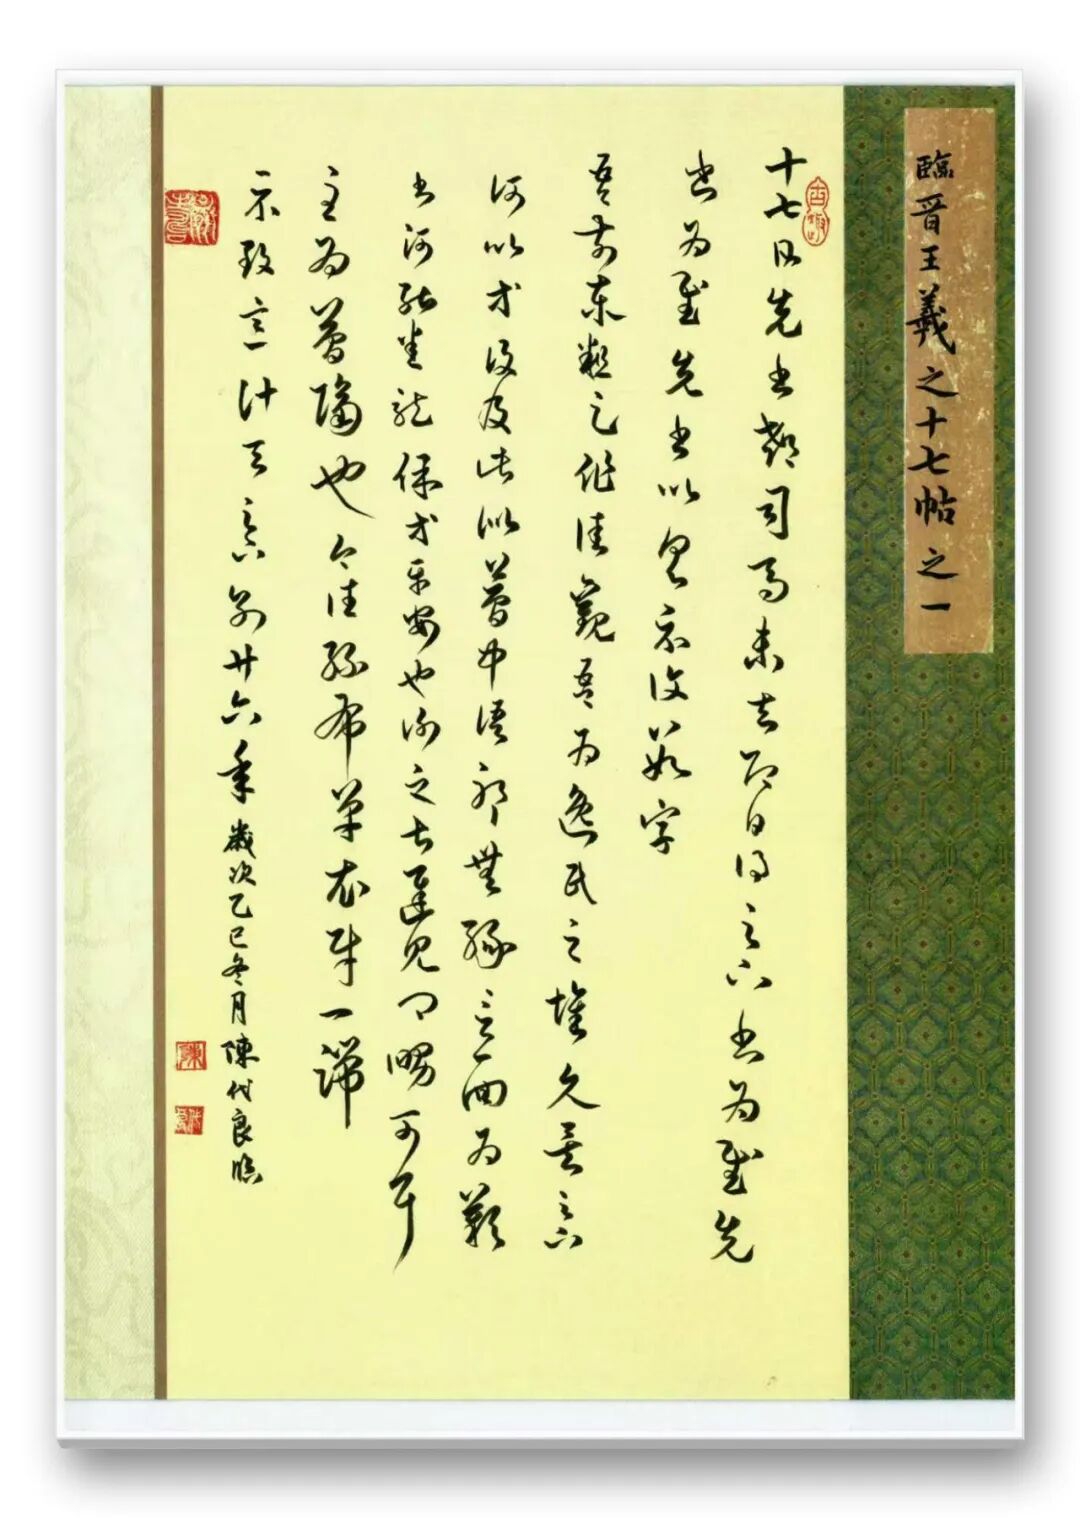 臨晉王羲之十七帖之一
十七日先書郗司馬未去即日得足下書為慰先
書為慰先書以具示復數字
吾前東粗足作佳觀吾為逸民之懷久矣足下
何以等復及此似夢中語耶無緣言面為歎
書何能悉龍保等平安也謝之甚遲見卿舅可耳
至為簡隔也今往絲布單衣財一端
示致意計與足下別廿六年歲次乙巳冬月陳代良臨
陳